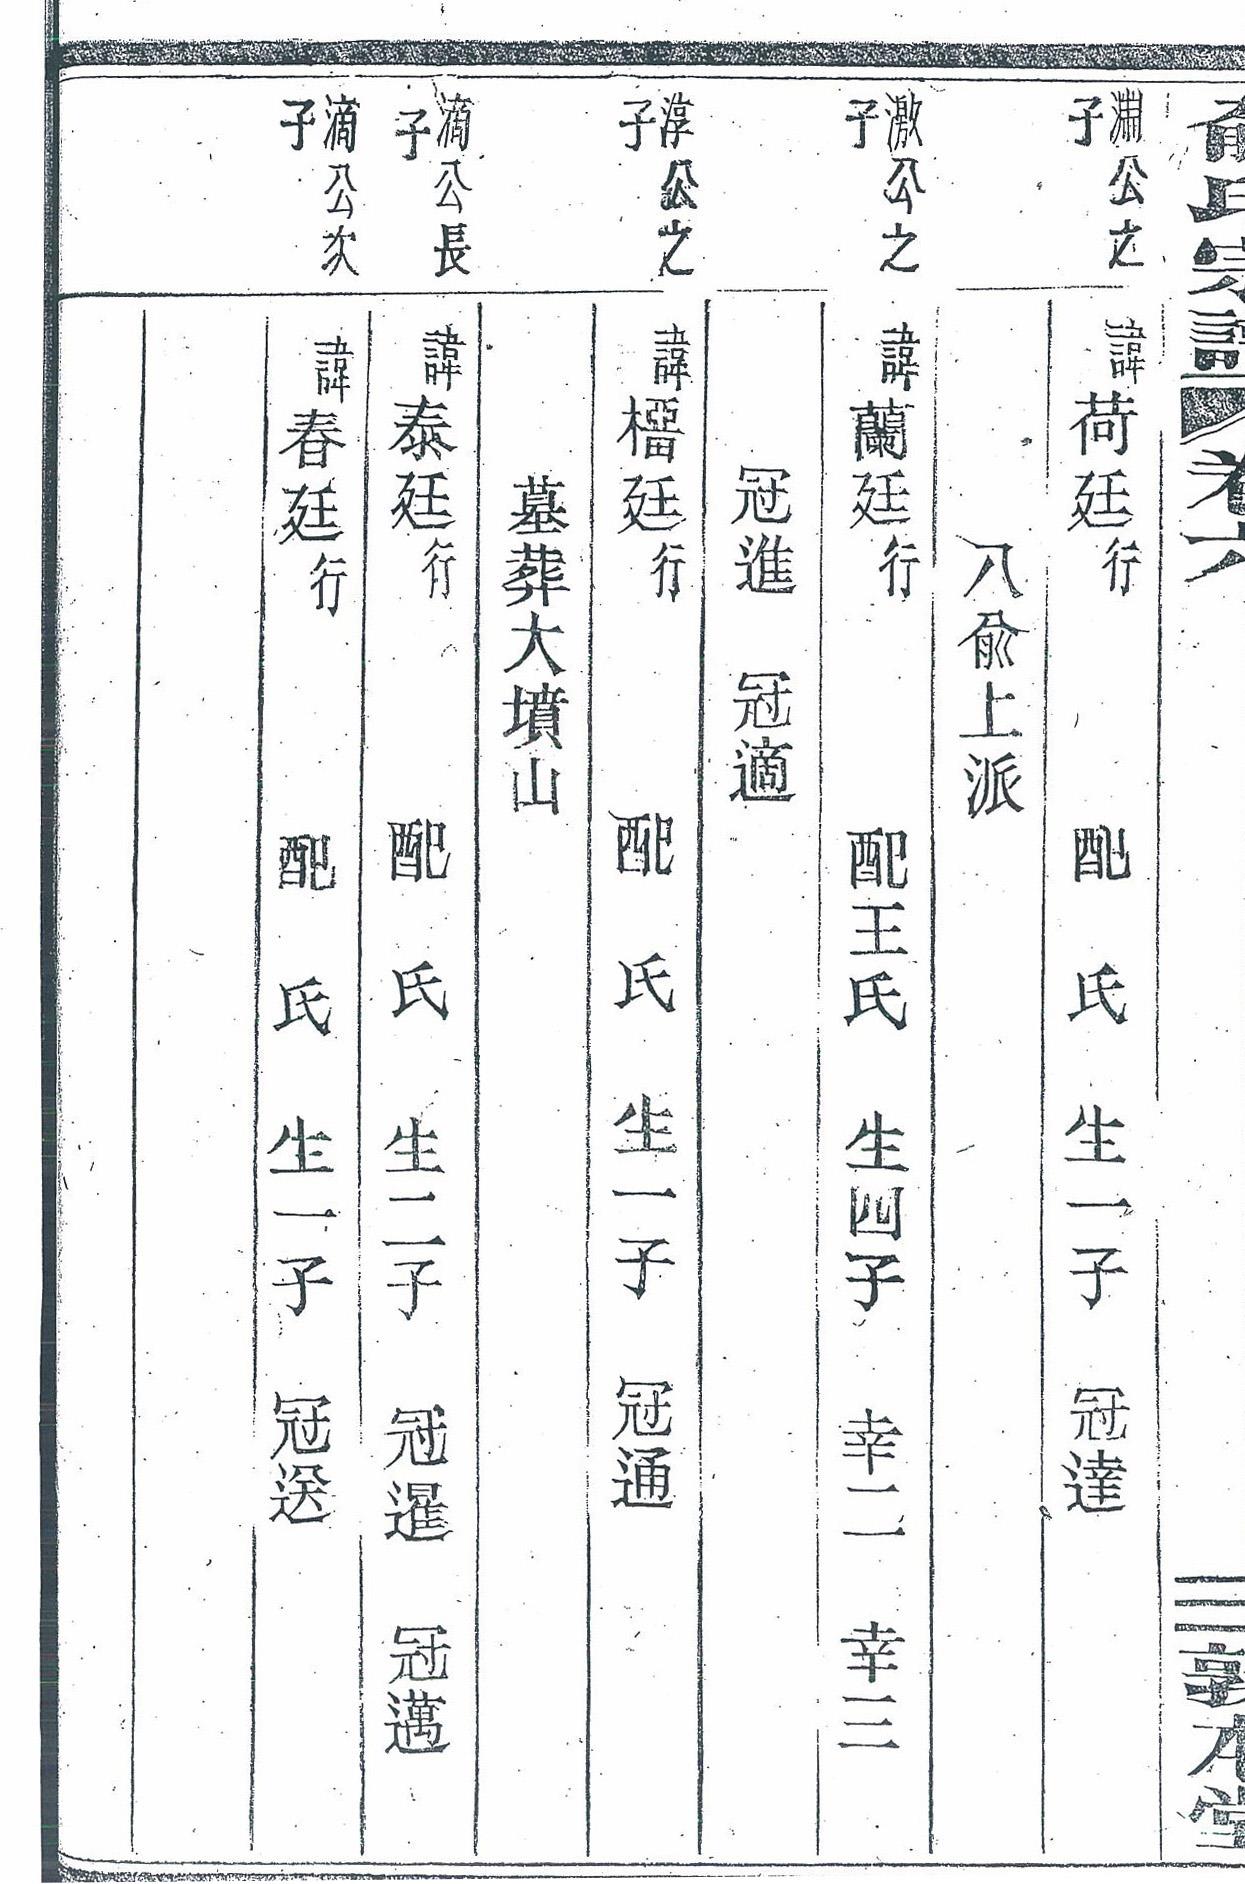 俞氏宗譜 卷六 三 敦本堂
淵公之子
諱荷廷行 配 氏 生一子 冠達
八俞上派
激公之子
諱蘭廷行 配王氏 生四子 幸二 幸三
冠進 冠適
淳公之子
諱橊廷行 配 氏 生一子 冠通
墓葬大墳山
滴公長子
諱泰廷行 配 氏 生二子 冠暹 冠邁
滴公次子
諱春廷行 配 氏 生一子 冠送